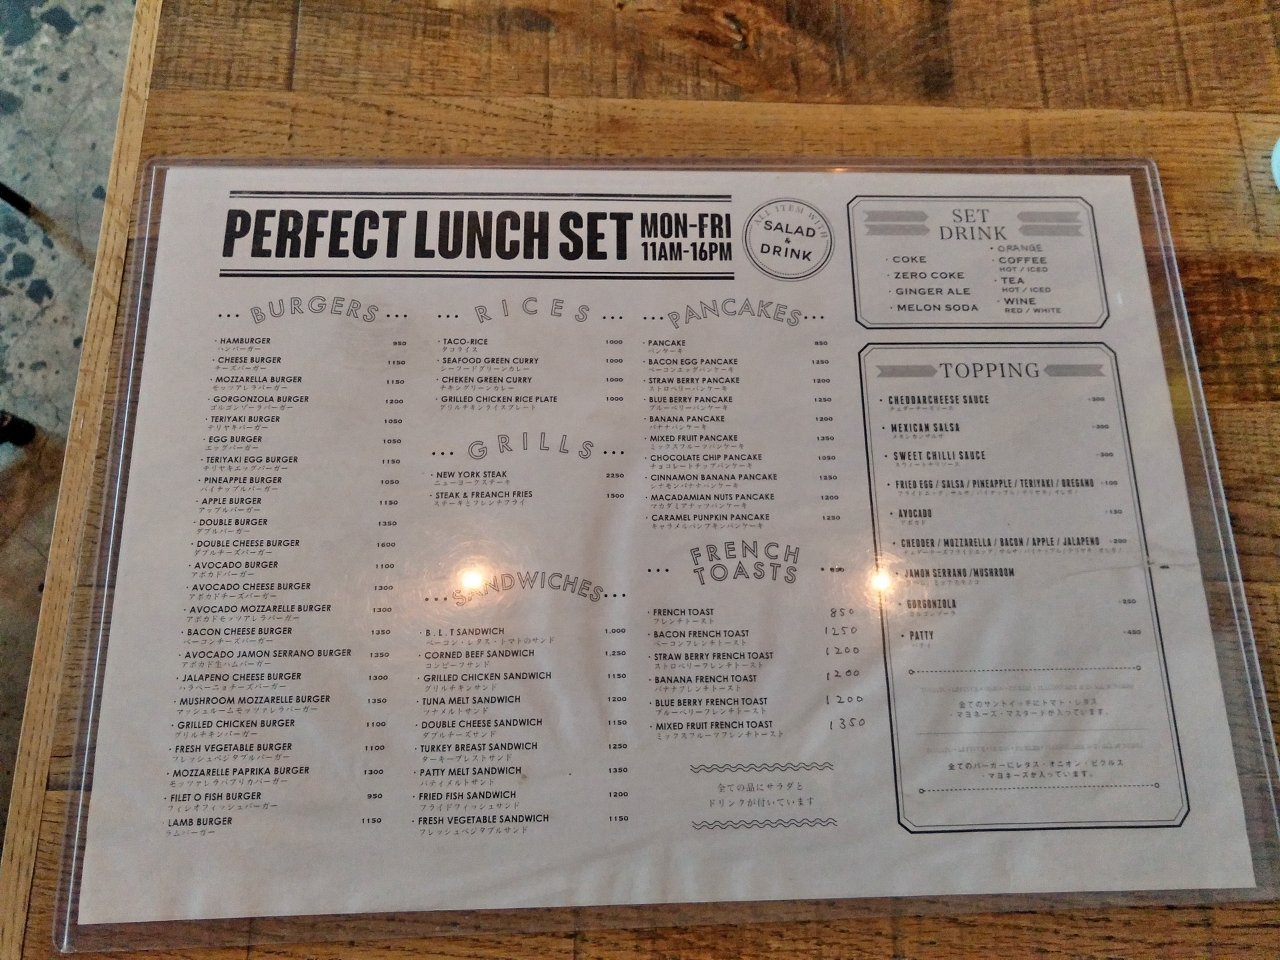 PERFECT LUNCH SET MON-FRI
11AM-16PM
ALL ITEM WITH
SALAD
&
DRINK
BURGERS
· HAMBURGER 950
ハンバーガー
· CHEESE BURGER 1150
チーズバーガー
· MOZZARELLA BURGER 1150
モッツァレラバーガー
· GORGONZOLA BURGER 1200
ゴルゴンゾーラバーガー
· TERIYAKI BURGER 1050
テリヤキバーガー
· EGG BURGER 1050
エッグバーガー
· TERIYAKI EGG BURGER 1150
テリヤキエッグバーガー
· PINEAPPLE BURGER 1050
パイナップルバーガー
· APPLE BURGER 1150
アップルバーガー
· DOUBLE BURGER 1350
ダブルバーガー
· DOUBLE CHEESE BURGER 1600
ダブルチーズバーガー
· AVOCADO BURGER 1100
アボカドバーガー
· AVOCADO CHEESE BURGER 1300
アボカドチーズバーガー
· AVOCADO MOZZARELLE BURGER 1300
アボカドモッツァレラバーガー
· BACON CHEESE BURGER 1350
ベーコンチーズバーガー
· AVOCADO JAMON SERRANO BURGER 1350
アボカド生ハムバーガー
· JALAPENO CHEESE BURGER 1300
ハラペーニョチーズバーガー
· MUSHROOM MOZZARELLE BURGER 1350
マッシュルームモッツァレラバーガー
· GRILLED CHICKEN BURGER 1100
グリルチキンバーガー
· FRESH VEGETABLE BURGER 1100
フレッシュベジタブルバーガー
· MOZZARELLE PAPRIKA BURGER 1300
モッツァレラパプリカバーガー
· FILET O FISH BURGER 950
フィレオフィッシュバーガー
· LAMB BURGER 1150
ラムバーガー
RICES
· TACO-RICE 1000
タコライス
· SEAFOOD GREEN CURRY 1000
シーフードグリーンカレー
· CHEKEN GREEN CURRY 1000
チキングリーンカレー
· GRILLED CHICKEN RICE PLATE 1000
グリルチキンライスプレート
GRILLS
· NEW YORK STEAK 2250
ニューヨークステーキ
· STEAK & FREANCH FRIES 1500
ステーキとフレンチフライ
SANDWICHES
· B . L . T SANDWICH 1,000
ベーコン・レタス・トマトのサンド
· CORNED BEEF SANDWICH 1,250
コンビーフサンド
· GRILLED CHICKEN SANDWICH 1150
グリルチキンサンド
· TUNA MELT SANDWICH 1200
ツナメルトサンド
· DOUBLE CHEESE SANDWICH 1150
ダブルチーズサンド
· TURKEY BREAST SANDWICH 1250
ターキーブレストサンド
· PATTY MELT SANDWICH 1350
パティメルトサンド
· FRIED FISH SANDWICH 1200
フライドフィッシュサンド
· FRESH VEGETABLE SANDWICH 1150
フレッシュベジタブルサンド
PANCAKES
· PANCAKE 850
パンケーキ
· BACON EGG PANCAKE 1250
ベーコンエッグパンケーキ
· STRAW BERRY PANCAKE 1200
ストロベリーパンケーキ
· BLUE BERRY PANCAKE 1250
ブルーベリーパンケーキ
· BANANA PANCAKE 1200
バナナパンケーキ
· MIXED FRUIT PANCAKE 1350
ミックスフルーツパンケーキ
· CHOCOLATE CHIP PANCAKE 1050
チョコレートチップパンケーキ
· CINNAMON BANANA PANCAKE 1250
シナモンバナナパンケーキ
· MACADAMIAN NUTS PANCAKE 1200
マカダミアナッツパンケーキ
· CARAMEL PUNPKIN PANCAKE 1250
キャラメルパンプキンパンケーキ
FRENCH
TOASTS
· FRENCH TOAST 850
フレンチトースト
· BACON FRENCH TOAST 1250
ベーコンフレンチトースト
· STRAW BERRY FRENCH TOAST 1200
ストロベリーフレンチトースト
· BANANA FRENCH TOAST 1200
バナナフレンチトースト
· BLUE BERRY FRENCH TOAST 1200
ブルーベリーフレンチトースト
· MIXED FRUIT FRENCH TOAST 1350
ミックスフルーツフレンチトースト
全ての品にサラダと
ドリンクが付いています
SET
DRINK
· COKE
· ZERO COKE
· GINGER ALE
· MELON SODA
· ORANGE
· COFFEE
HOT / ICED
· TEA
HOT / ICED
· WINE
RED / WHITE
TOPPING
· CHEDDARCHEESE SAUCE +300
チェダーチーズソース
· MEXICAN SALSA +300
メキシカンサルサ
· SWEET CHILLI SAUCE +300
スウィートチリソース
· FRIED EGG / SALSA / PINEAPPLE / TERIYAKI / OREGANO +100
· AVOCADO +150
アボカド
· CHEDDER / MOZZARELLA / BACON / APPLE / JALAPENO +200
· JAMON SERRANO / MUSHROOM
· GORGONZOLA +250
ゴルゴンゾーラ
· PATTY +450
パティ
全てのサンドイッチにトマト・レタス
・マヨネーズ・マスタードが入っています。
全てのバーガーにレタス・オニオン・ピクルス
・マヨネーズが入っています。